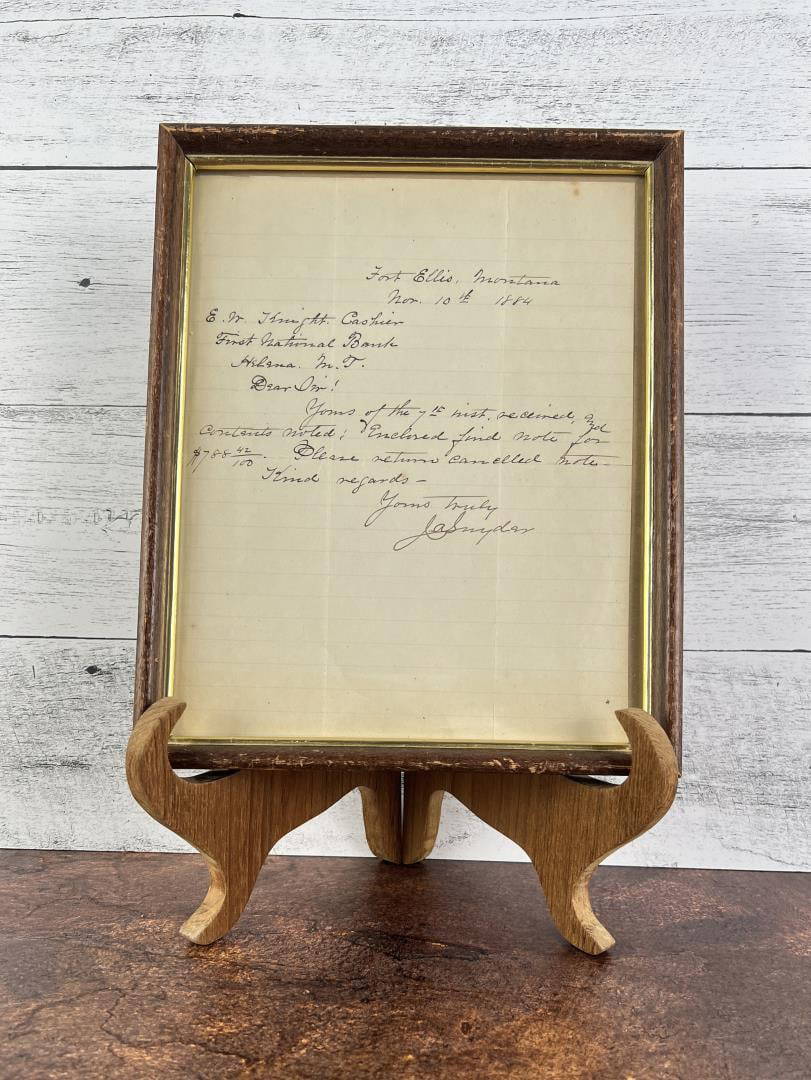 Fort Ellis, Montana
Nov. 10th 1884
E. W. Knight. Cashier
First National Bank
Helena. M. T.
Dear Sir!
Yours of the 7th inst. received, and
Contents noted; Enclosed find note for
$788 42/100. Please return cancelled note—
Kind regards—
Yours truly
J A Snyder